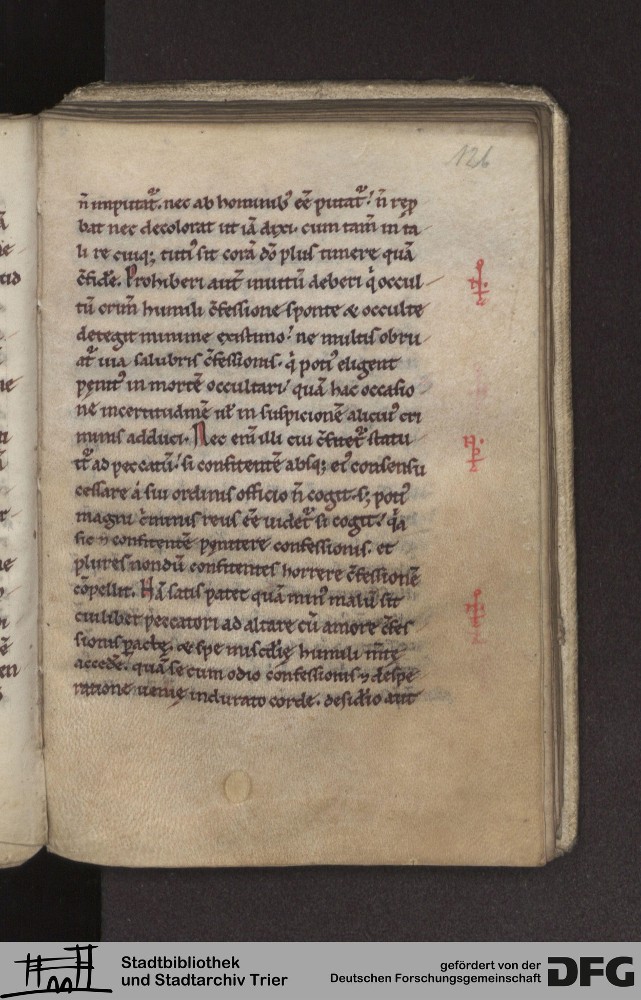 126
n̄ imputat᷑. nec ab hominib᷒ eē putat᷑. n̄ rep̱
bat nec decolorat ut iā dixi. cum tam̄ in ta
li re cuiq; tuti᷒ sit corā dō plus timere quā
c̄fidēe. Prohiberi aut̄ inuitū deberi q̇ occul
tū crim̄ humili c̄fessione sponte & occulte
detegit minime existimo. ne multis obru
at᷑ uia salubris c̄fessionis. q̇ poti᷒ eligent
penit᷒ in mortē occultari quā hac occasio
ne incertitudinē ul̄ in suspicionē alicui᷒ cri
minis adduci. Nec eni᷒ illi cui c̄fitet᷑ statu
it᷑ ad peccatū. si confitentē absq; ei᷒ consensu
cessare a sui ordinis officio n̄ cogit. s; poti᷒
magni c̄minis reus eē uidet᷑ si cogit. q̇a
sic ⁊ confitentē penitere confessionis. et
plures nondū confitentes horrere c̄fessionē
cōpellit. Nā satis patet quā min᷒ malū sit
cuilibet peccatori ad altare cū amore c̄fes
sionis pactę. & spe mis̄dię humili m̄te
accedēe. quā se cum odio confessionis ⁊ despe
ratione uenię indurato corde. desid̄io aut
Stadtbibliothek
und Stadtarchiv Trier
gefördert von der
Deutschen Forschungsgemeinschaft
DFG